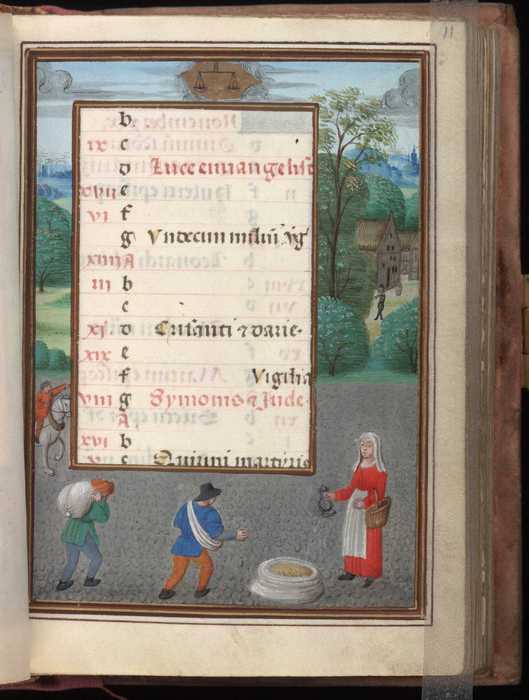 11
b
ix c
d Luce euuangelist
xvii e
vi f
g Undecim miliū ṽg
xiiii A
iii b
c
xi d Crisanti ⁊ darie·
xix e
f Vigilia
viii g Symonis ⁊ Jude·
A
xvi b
v c Quintini martiris